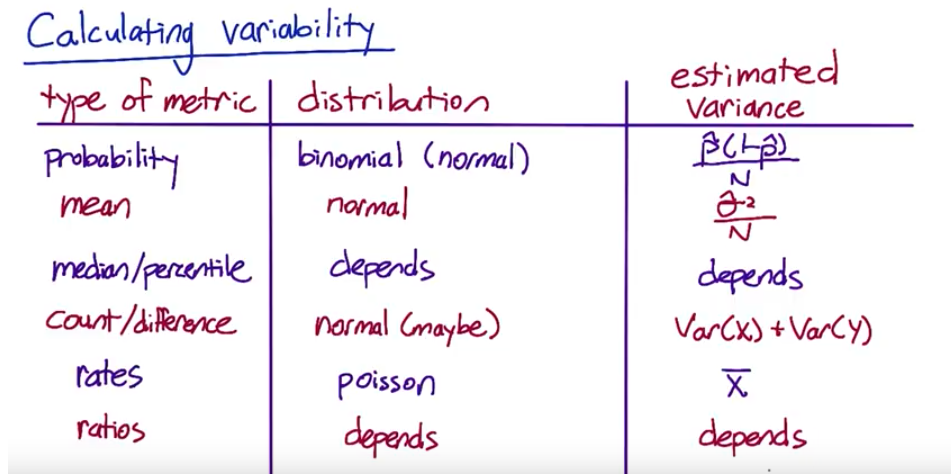 Calculating variability
type of metric distribution estimated variance
probability binomial (normal) p̂(1-p̂)/N
mean normal σ̂²/N
median/percentile depends depends
count/difference normal (maybe) Var(X) + Var(Y)
rates poisson X̄
ratios depends depends